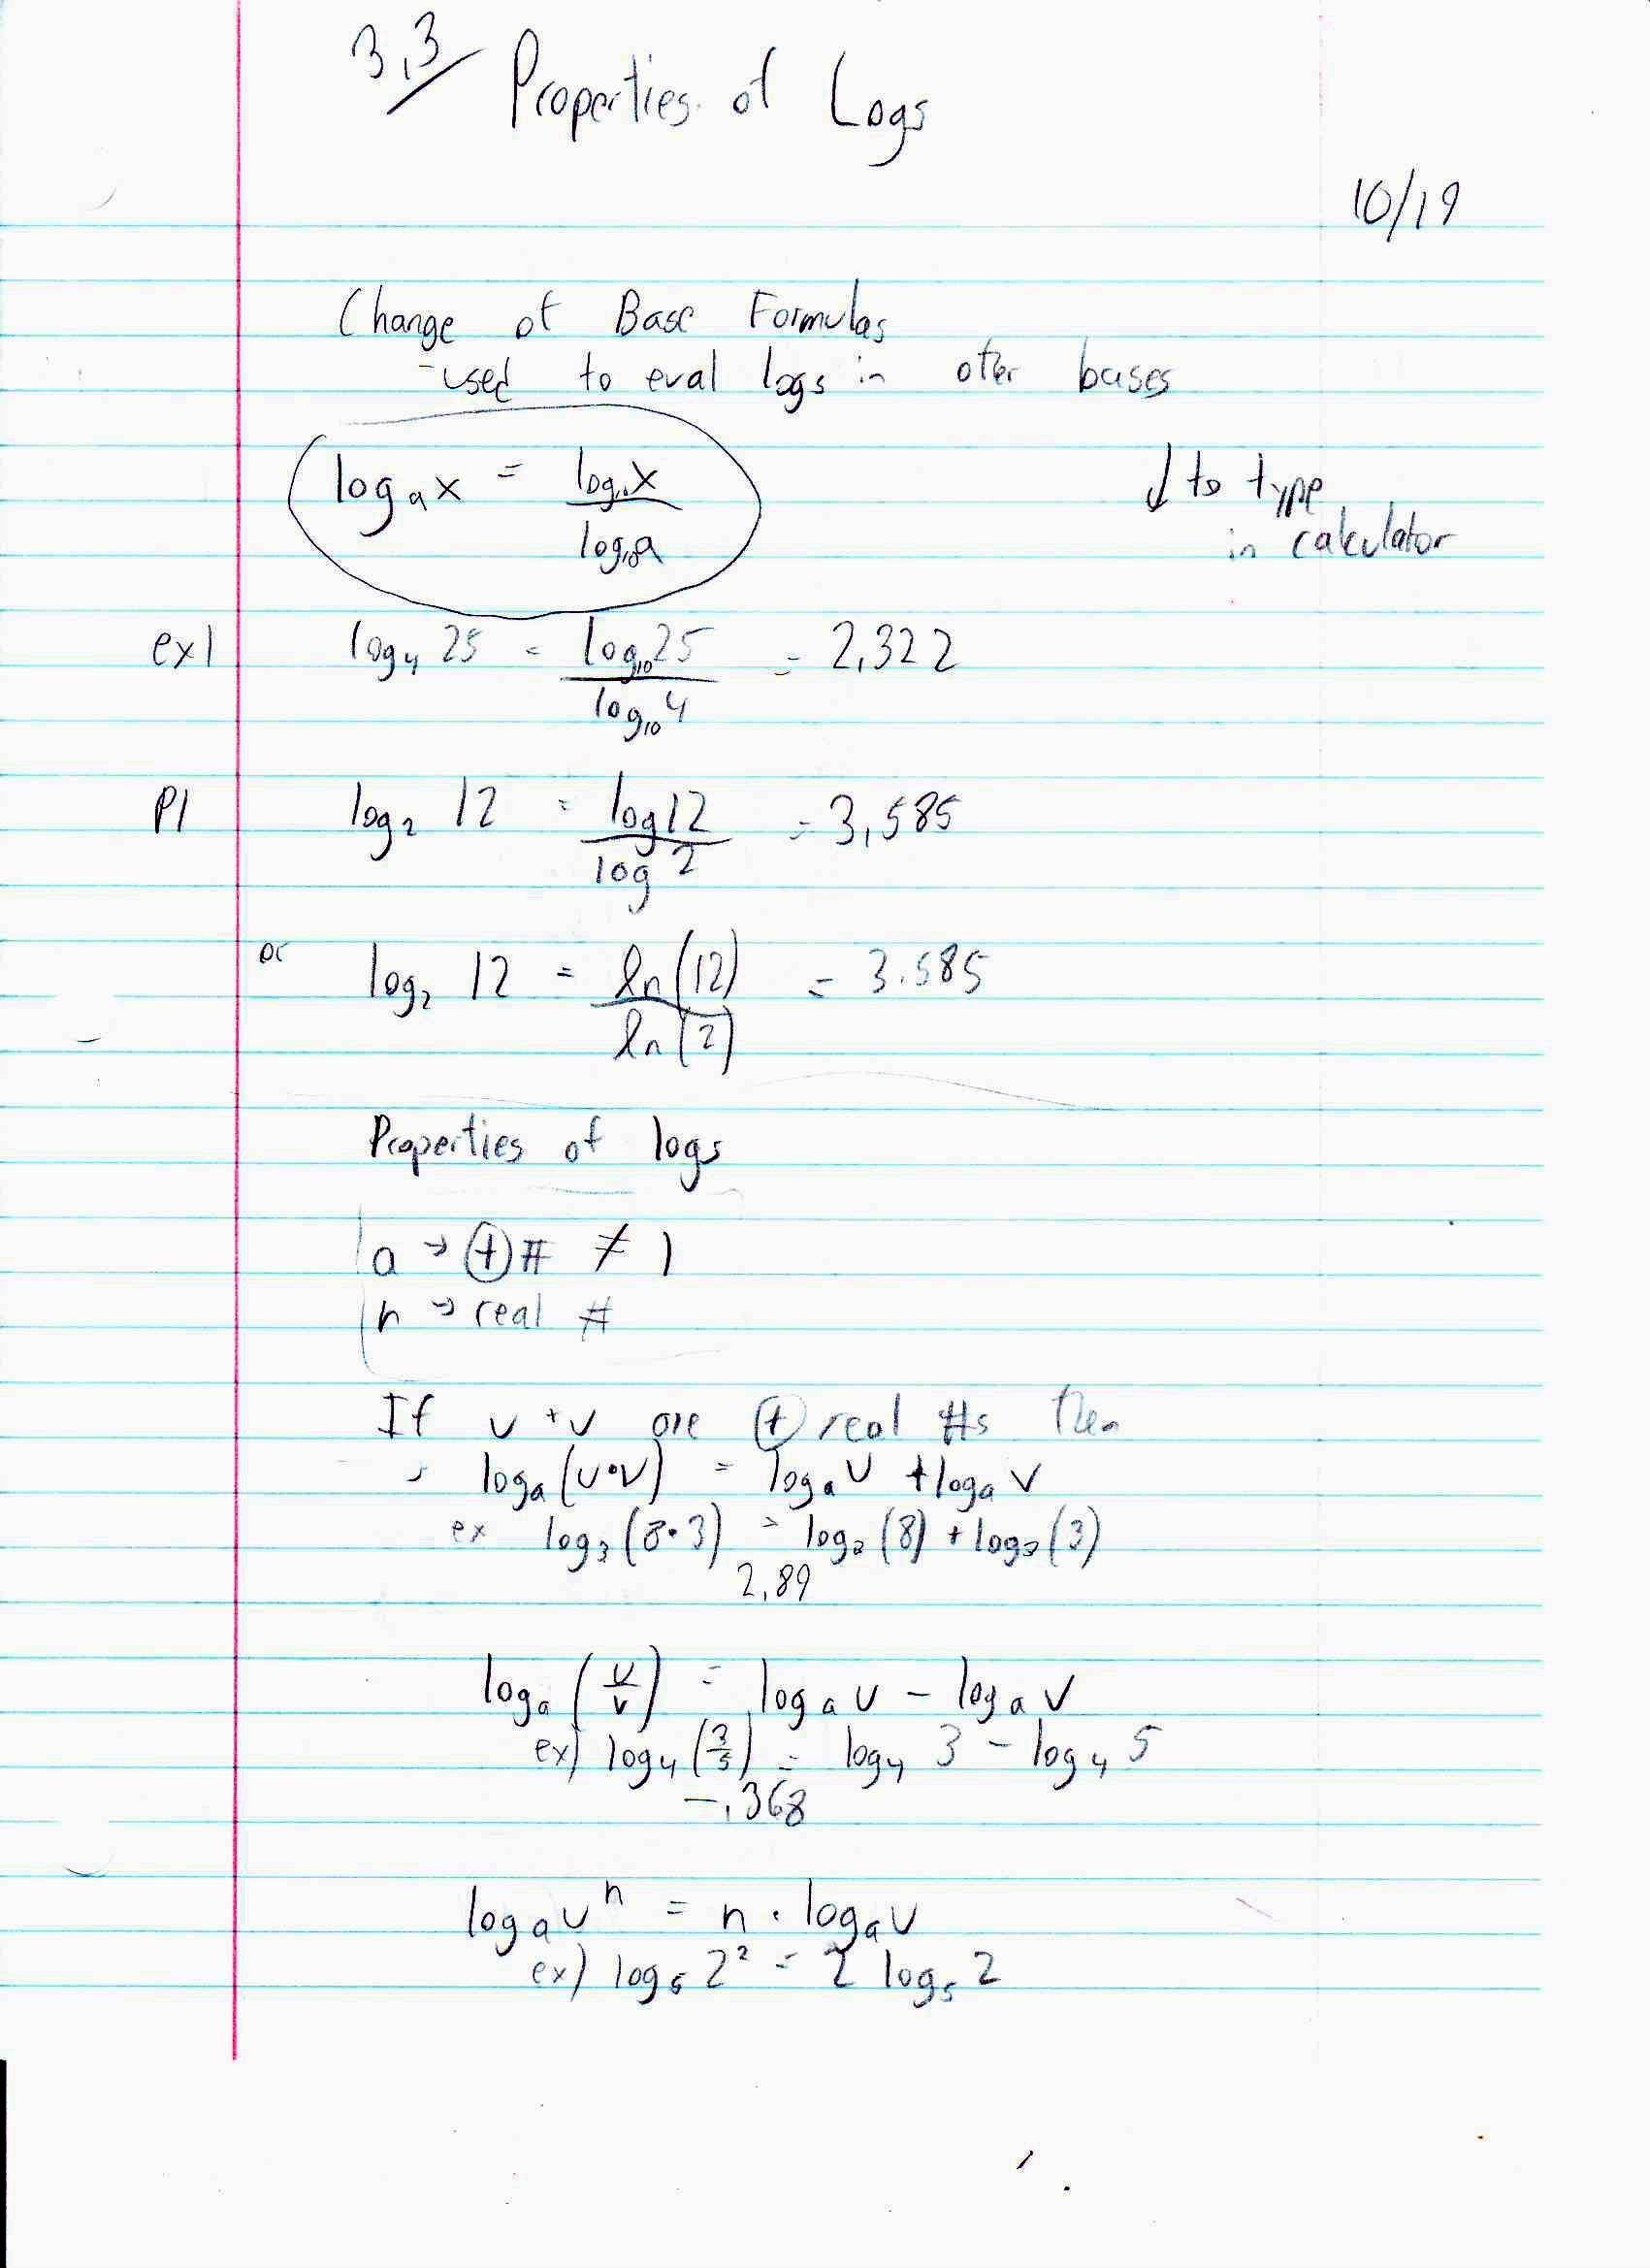 3.3 Properties of Logs
10/19
Change of Base Formulas
-used to eval logs in other bases
logₐx = log₁₀x / log₁₀a
↓ to type
in calculator
ex1 log₄ 25 = log₁₀25 / log₁₀4 = 2.322
P1 log₂ 12 = log12 / log 2 = 3.585
or log₂ 12 = ln(12) / ln(2) = 3.585
Properties of logs
a → ⊕# ≠ 1
n → real #
If u + v are ⊕ real #s then
logₐ(u•v) = logₐu + logₐv
ex log₃(8•3) = log₃(8) + log₃(3)
2.89
logₐ(u/v) = logₐu - logₐv
ex) log₄(3/5) = log₄ 3 - log₄ 5
-.368
logₐuⁿ = n · logₐu
ex) log₅ 2² = 2 log₅ 2